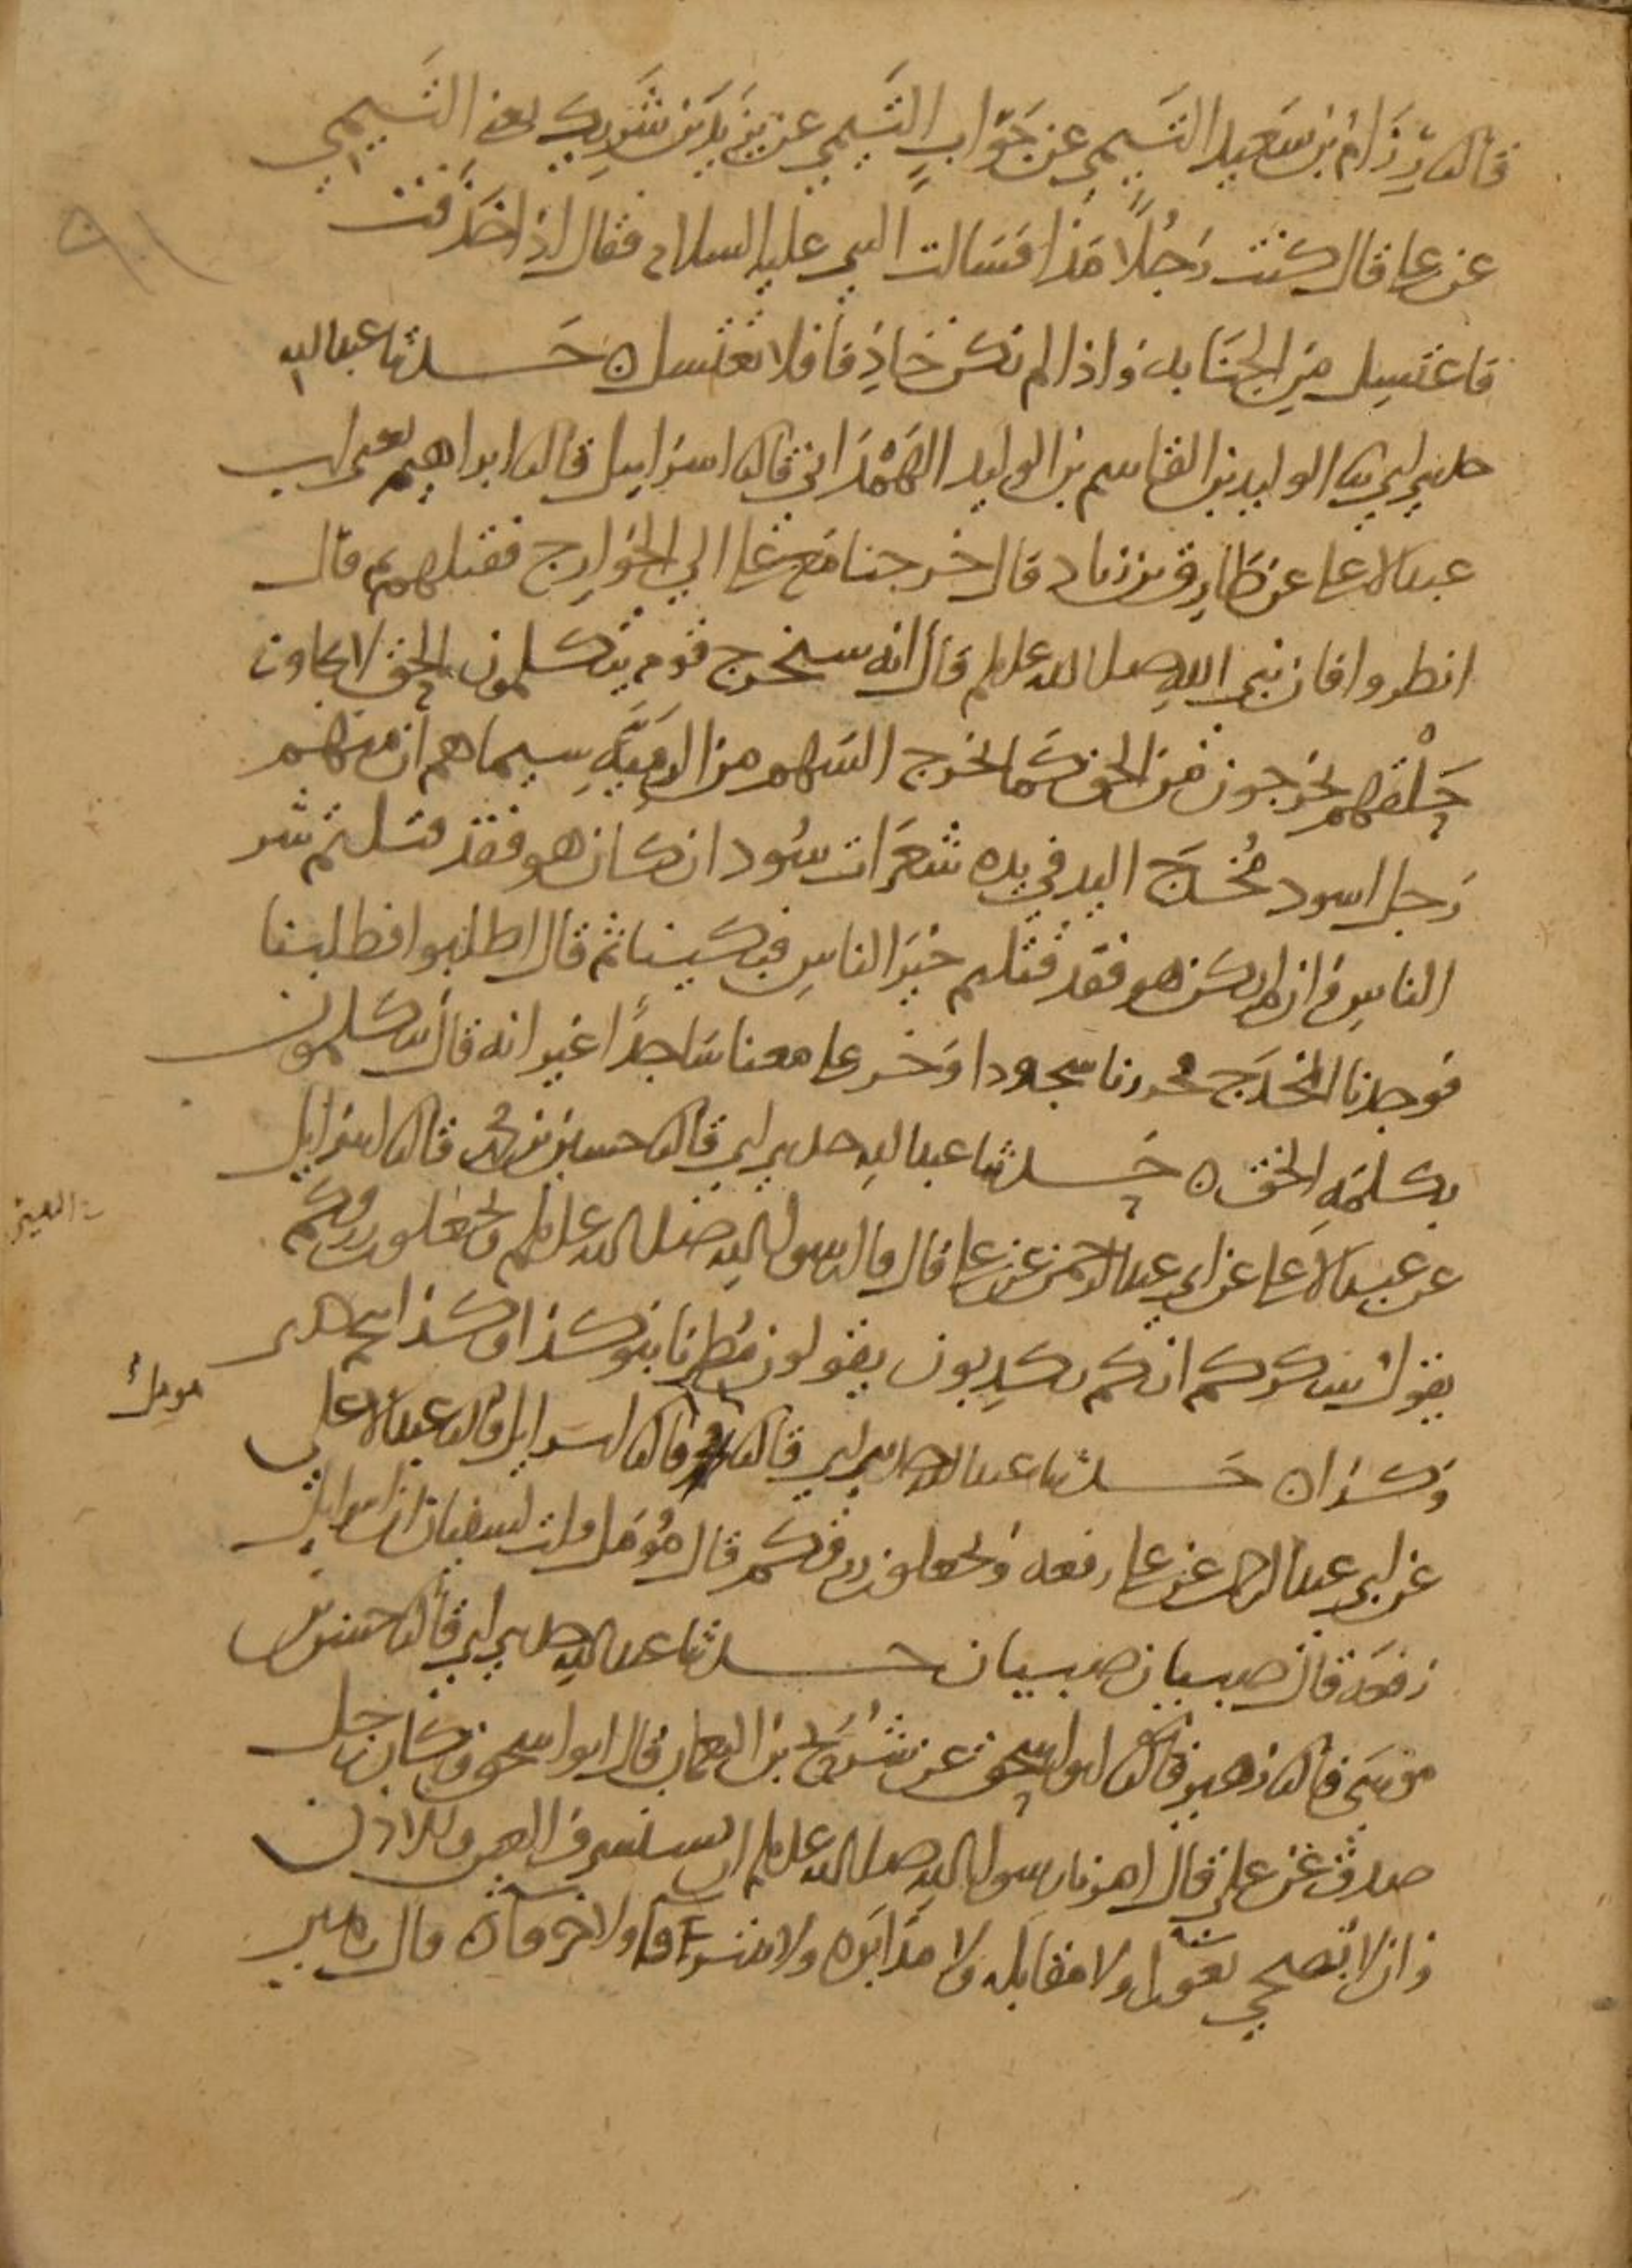 قال نا رِزَامُ بن سَعيد التَيمي عن جَوَّابٍ التَيمي عن يَزيدَ بن شَرِيك يعني التَيمي
عن علي قال كنت رَجُلاً مَذَّاءً فسَالت النبي عليه السلام فقال اذا خَذَفْتَ
فاغتسِل مِن الجنَابة واذا لم تكن خَاذِفا فلا تغتسل ه حَدثنا عبد الله
حدثني ابي نا الوليد بن القاسم بن الوليد الهَمْدَاني قال نا اسرائيل قال نا ابراهيم يعني ابن
عبد الاعلى عن طَارِق بن زياد قال خرجنا مَع علي الى الخوَارِج فقتلهم ثم قال
انظروا فان نبي اللهِ صلى الله عليه وسلم قال انه سيخرج قوم يتكلمون بالحق لا يجاوز
حَلْقَهم يخرجون من الحق كما يخرج السَهم من الرَميَّةِ سيماهم ان منهم
رَجل اسود مُخْدَج اليد في يده شَعَرَات سُود ان كان هو فقد قتلتم شر
الناسِ وان لم يكن هو فقد قتلتم خيرَ الناسِ فبكينا ثم قال اطلبوا فطلبنا
فوجدنا المخدَج فخررنا سجودا وَخر علي معنا سَاجداً غير انه قال يتكلمون
بكلمةِ الحق ه حَدثنا عبد الله حدثني ابي قال نا حسين بن محمد قال نا اسرائيل
عن عبد الاعلى عن ابي عبد الرحمن عن علي قال قال رسول الله صلى الله عليه وسلم وتجعلون رزقكم
يقول شكركم انكم تكذبون يقولون مُطِرنا بنو كذا وكذا بنجم
وَكذا ه حَدثنا عبد الله حدثني ابي قال نا قال نا اسرائيل قال نا عبد الاعلى
مومل
عن ابي عبد الرحمن عن علي رفعه وتجعلون رزقكم قال مُؤمَل قلت لسفيان ان اسرائيل
رَفعَه قال صبيان صبيان حدثنا عبد الله حدثني ابي قال نا حسن بن
موسَى قال نا زهير قال نا ابو اسحق عن شُرَيح بن النعمان قال ابو اسحق وكان رجل
صدق عن علي قال امرنا رسول الله صلى الله عليه وسلم ان نستشرف العين والاذن
وان لا نضحي بعوراء ولا مقابله ولا مدَابَره ولا شرقاء ولا خرقاء ه قال زهير